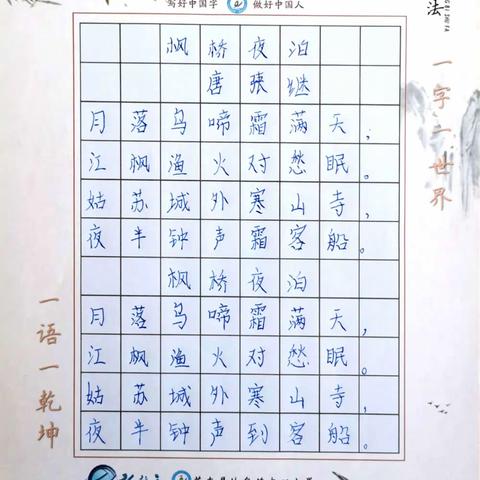 写好中国字 做好中国人
法
一字一世界
枫桥夜泊
唐 张继
月落乌啼霜满天，
江枫渔火对愁眠。
姑苏城外寒山寺，
夜半钟声霜客船。
枫桥夜泊
月落乌啼霜满天，
江枫渔火对愁眠。
姑苏城外寒山寺，
夜半钟声到客船。
一语一乾坤